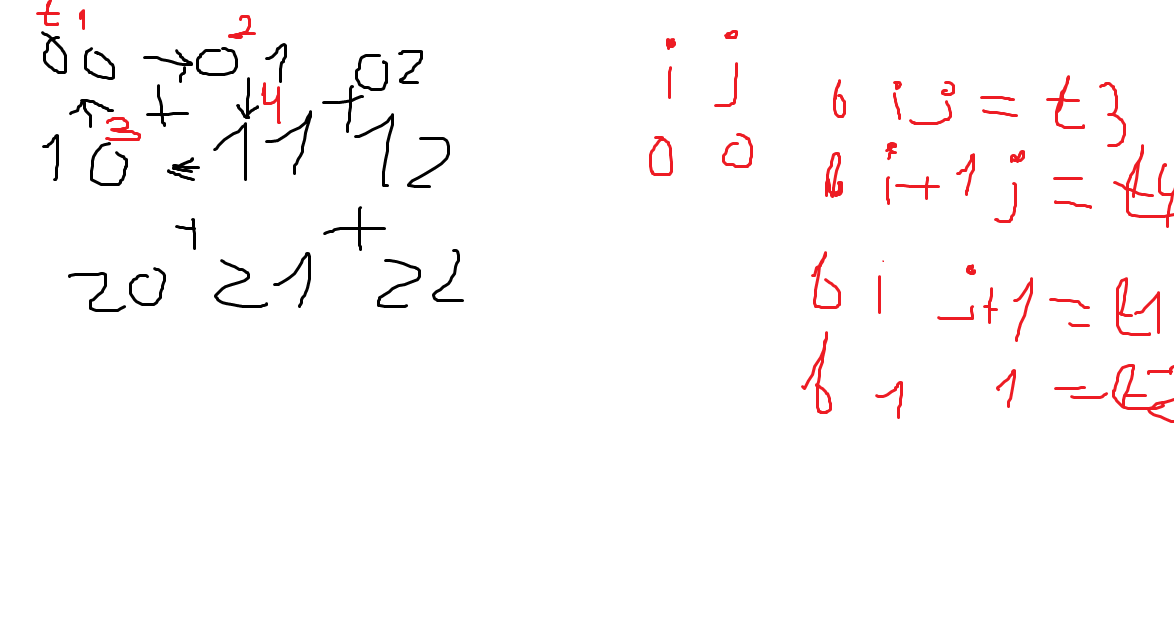 t 1
00 → 0 1 02
2
↑ + ↓ 4 +
10 3 ← 11 12
+ +
20 21 22
i j
0 0
b i j = t3
b i+1 j = t4
b i j+1 = t1
b 1 1 = t2